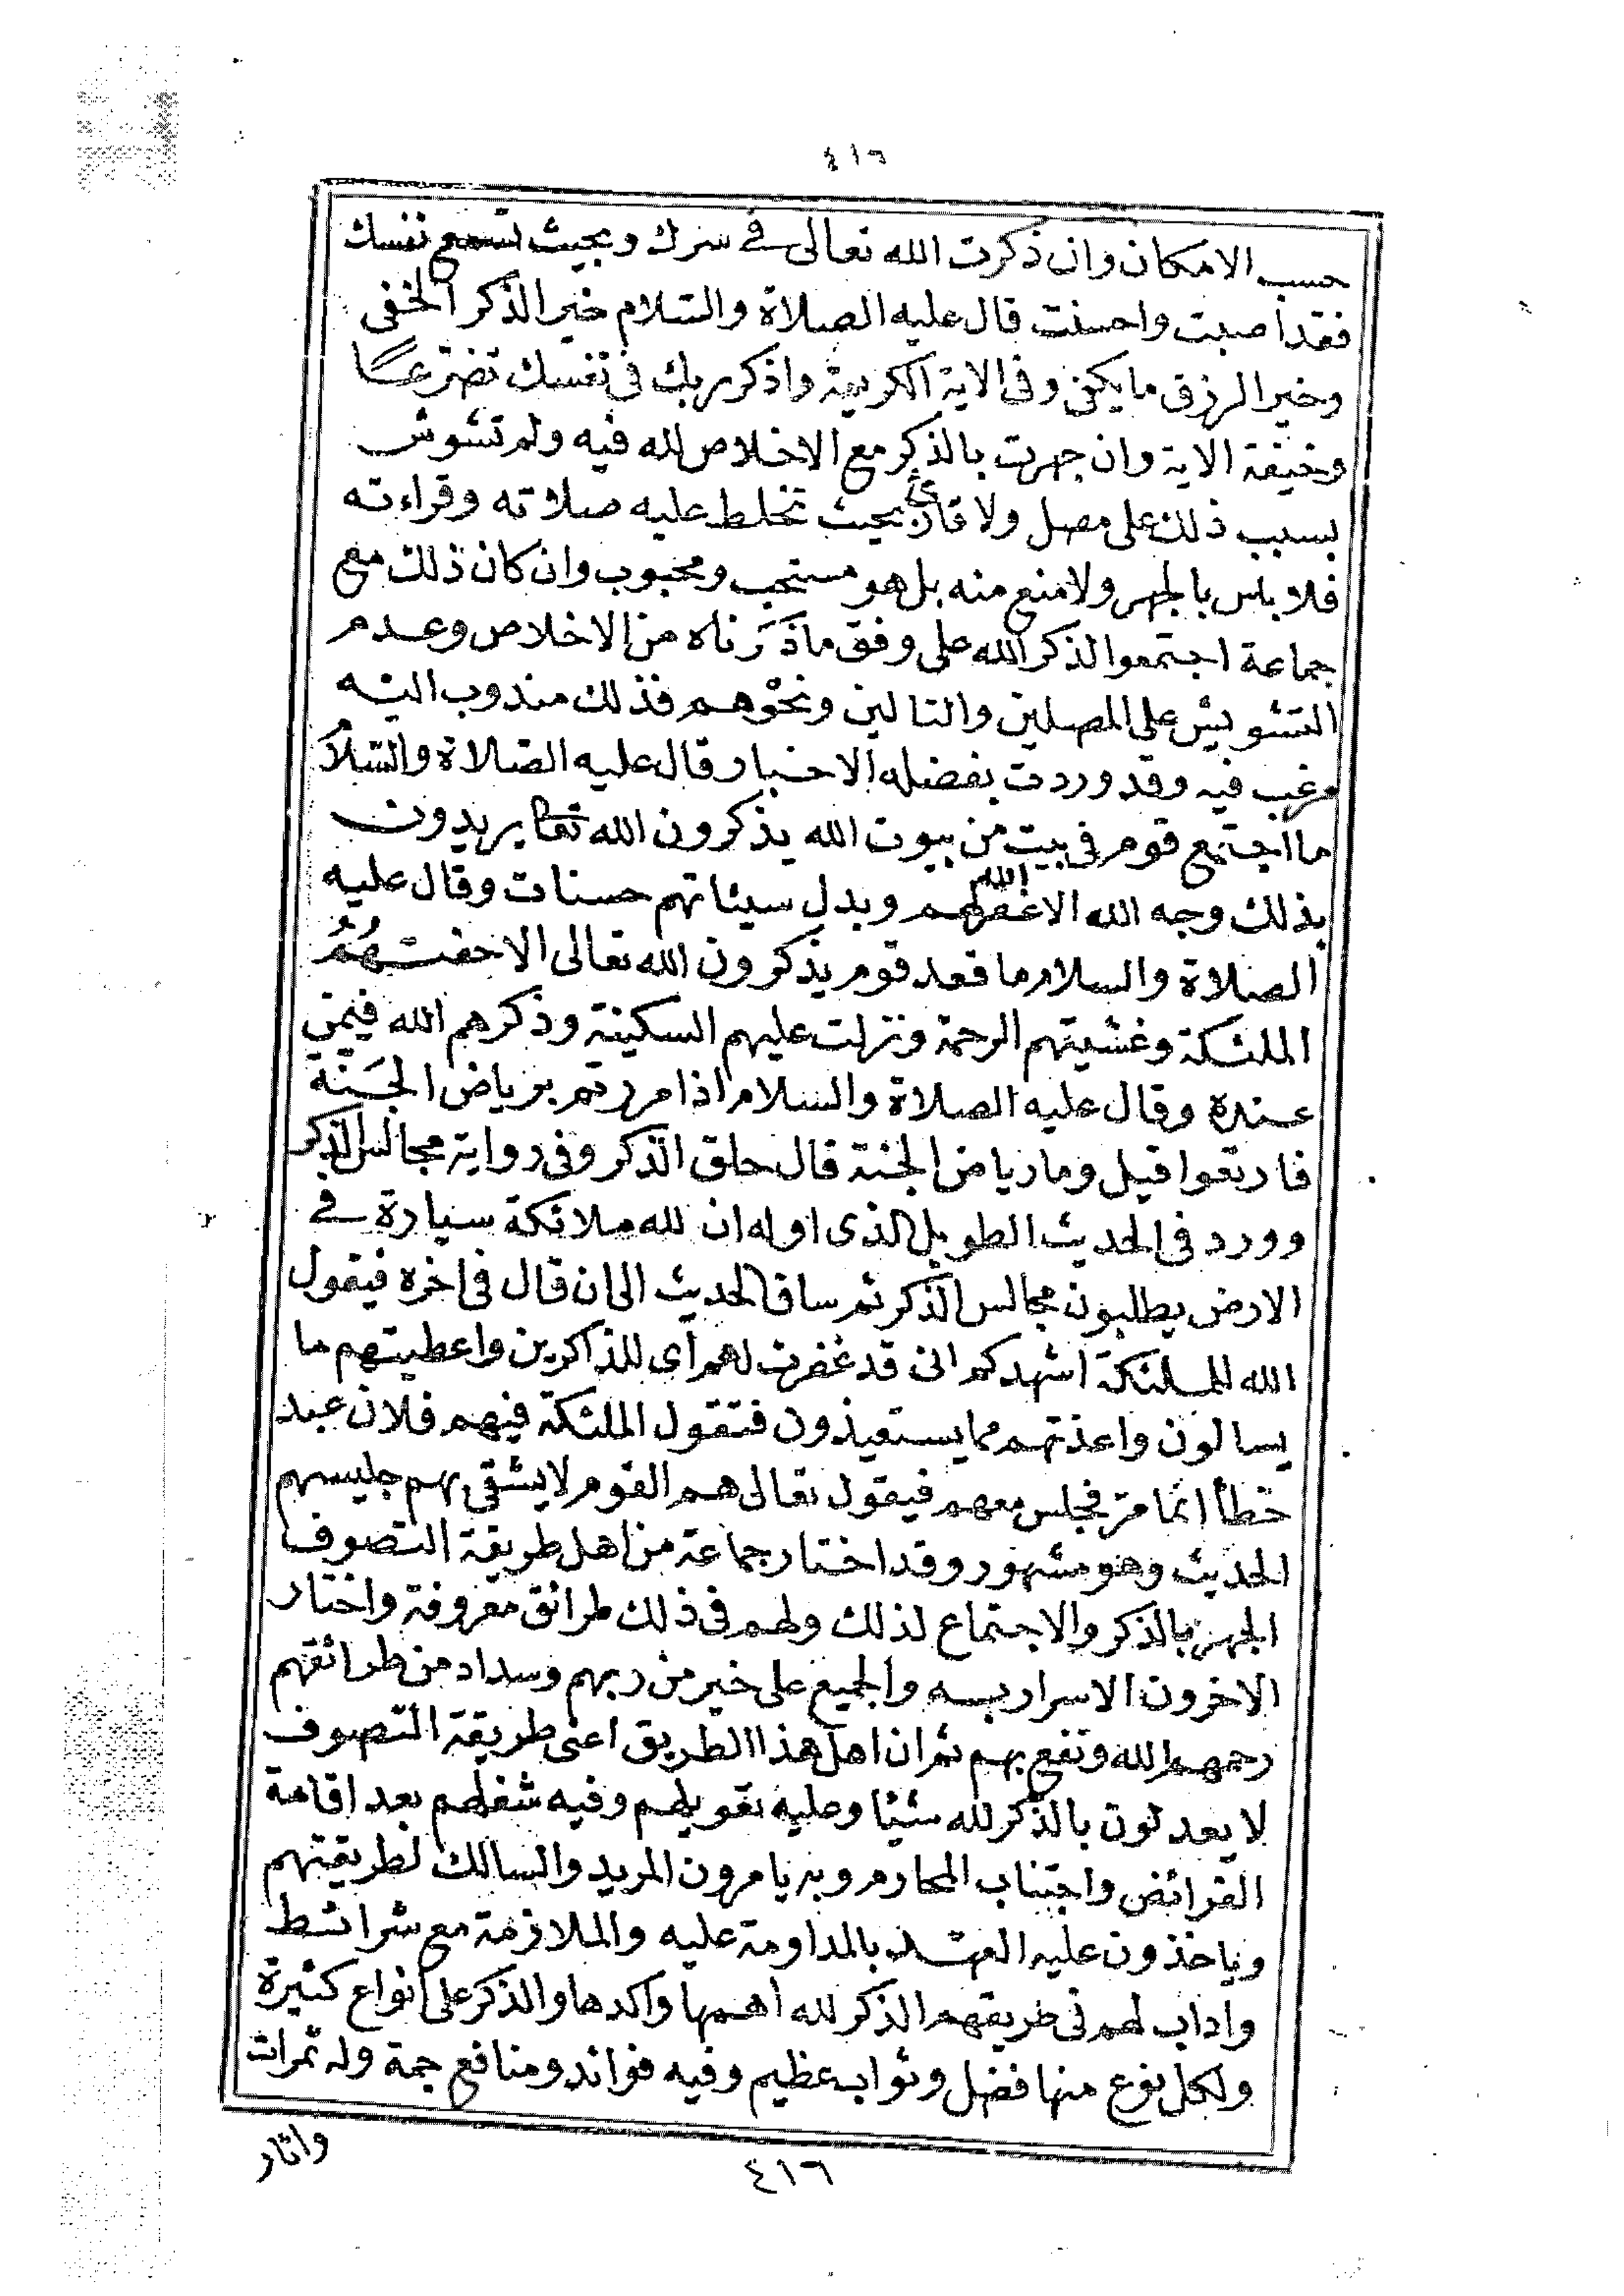 ٤١٦
حسب الامكان وان ذكرت الله تعالى فى سرك وبحيث تسمع نفسك
فقد اصبت واحسنت قال عليه الصلاة والسلام خير الذكر الخفى
وخير الرزق ما يكفى وفى الاية الكريمة واذكر ربك فى نفسك تضرعًا
وخيفة الاية وان جهرت بالذكر مع الاخلاص لله فيه ولم تشوش
بسبب ذلك على مصل ولا قارئ بحيث تخلط عليه صلاته وقراءته
فلا باس بالجهر ولا منع منه بل هو مستحب ومحبوب وان كان ذلك مع
جماعة اجتمعوا لذكر الله على وفق ما ذكرناه من الاخلاص وعدم
التشويش على المصلين والتالين ونحوهم فذلك مندوب اليه
مرغب فيه وقد وردت بفضله الاخبار قال عليه الصلاة والسلا
ما اجتمع قوم فى بيت من بيوت الله يذكرون الله تعا يريدون
بذلك وجه الله الا غفر الله لهم وبدل سيئاتهم حسنات وقال عليه
الصلاة والسلام ما قعد قوم يذكرون الله تعالى الا حفتهُمُ
الملئكة وغشيتهم الرحمة ونزلت عليهم السكينة وذكرهم الله فيمن
عنده وقال عليه الصلاة والسلام اذا مررتم برياض الجَنّة
فارتعوا قيل وما رياض الجنة قال حلق الذكر وفى رواية مجالس الذكر
وورد فى الحديث الطويل الذى اوله ان لله ملائكة سيارة فى
الارض يطلبون مجالس الذكر ثم ساق الحديث الى ان قال فى اخره فيقول
الله للملئكة اشهدكم انى قد غفرت لهم اى للذاكرين واعطيتهم ما
يسالون واعذتهم مما يستعيذون فتقول الملئكة فيهم فلان عبد
خطأ انما مرّ فجلس معهم فيقول تعالى هم القوم لا يشقى بهم جليسهم
الحديث وهو مشهور وقد اختار جماعة من اهل طريقة التصوف
الجهر بالذكر والاجتماع لذلك ولهم فى ذلك طرائق معروفة واختار
الاخرون الاسرار به والجميع على خير من ربهم وسداد من طرائقهم
رحمهم الله ونفع بهم ثم ان اهل هذا الطريق اعنى طريقة التصوف
لا يعدلون بالذكر لله شيئا وعليه تعويلهم وفيه شغلهم بعد اقامة
الفرائض واجتناب المحارم وبه يامرون المريد والسالك لطريقتهم
وياخذون عليه العهد بالمداومة عليه والملازمة مع شرائط
واداب لهم فى طريقهم الذكر لله اهمها واكدها والذكر على انواع كثيرة
ولكل نوع منها فضل وثواب عظيم وفيه فوائد ومنافع جمة وله ثمرات
واثار
٤١٦